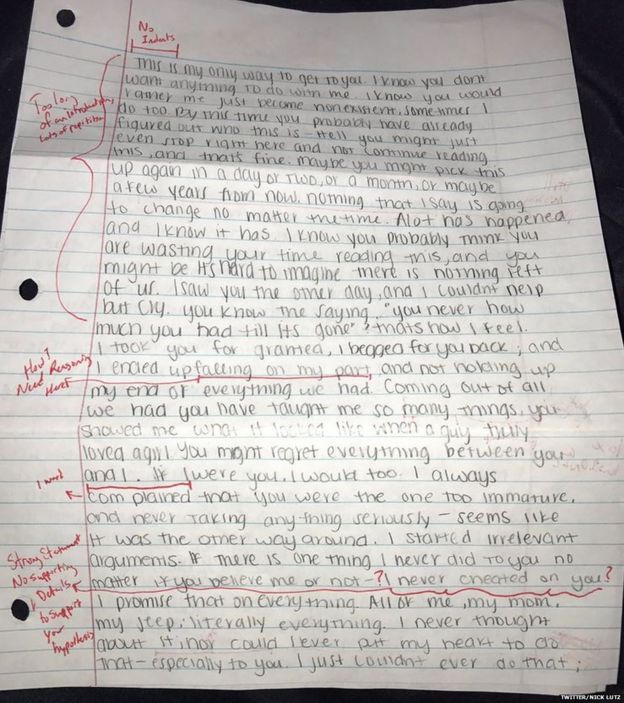 No
Indents
This is my only way to get to you. I know you dont
want anything to do with me. I know you would
rather me just become nonexistent, sometimes I
do too. By this time you probably have already
figured out who this is - Hell you might just
even stop right here and not continue reading
this, and thats fine. maybe you might pick this
up again in a day or two, or a month, or maybe
a few years from now. nothing that I say is going
to change no matter the time. Alot has happened,
and I know it has I know you probably think you
are wasting your time reading this, and you
might be its hard to imagine there is nothing left
of us. I saw you the other day, and I couldnt help
but cry. you know the saying, "you never how
much you had till its gone" & thats how I feel.
I took you for granted, I begged for you back; and
I ended up falling on my part, and not holding up
my end of everything we had. Coming out of all
we had you have taught me so many things, you
showed me what it looked like when a guy truly
loved a girl. You might regret everything between you
and I. If I were you, I would too. I always
complained that you were the one too immature,
and never taking anything seriously - seems like
it was the other way around. I started irrelevant
arguments. If there is one thing I never did to you no
matter if you believe me or not - ? I never cheated on you?
I promise that on everything. All of me, my mom,
my step; literally everything. I never thought
about it; nor could I ever put my heart to do
that - especially to you. I just couldnt ever do that;
Too long
of an introduction,
lots of repetition
How?
Need Reasoning
Here!
1 word
Strong Statement
No supporting
Details
to support
your
hypothesis
TWITTER/NICK LUTZ